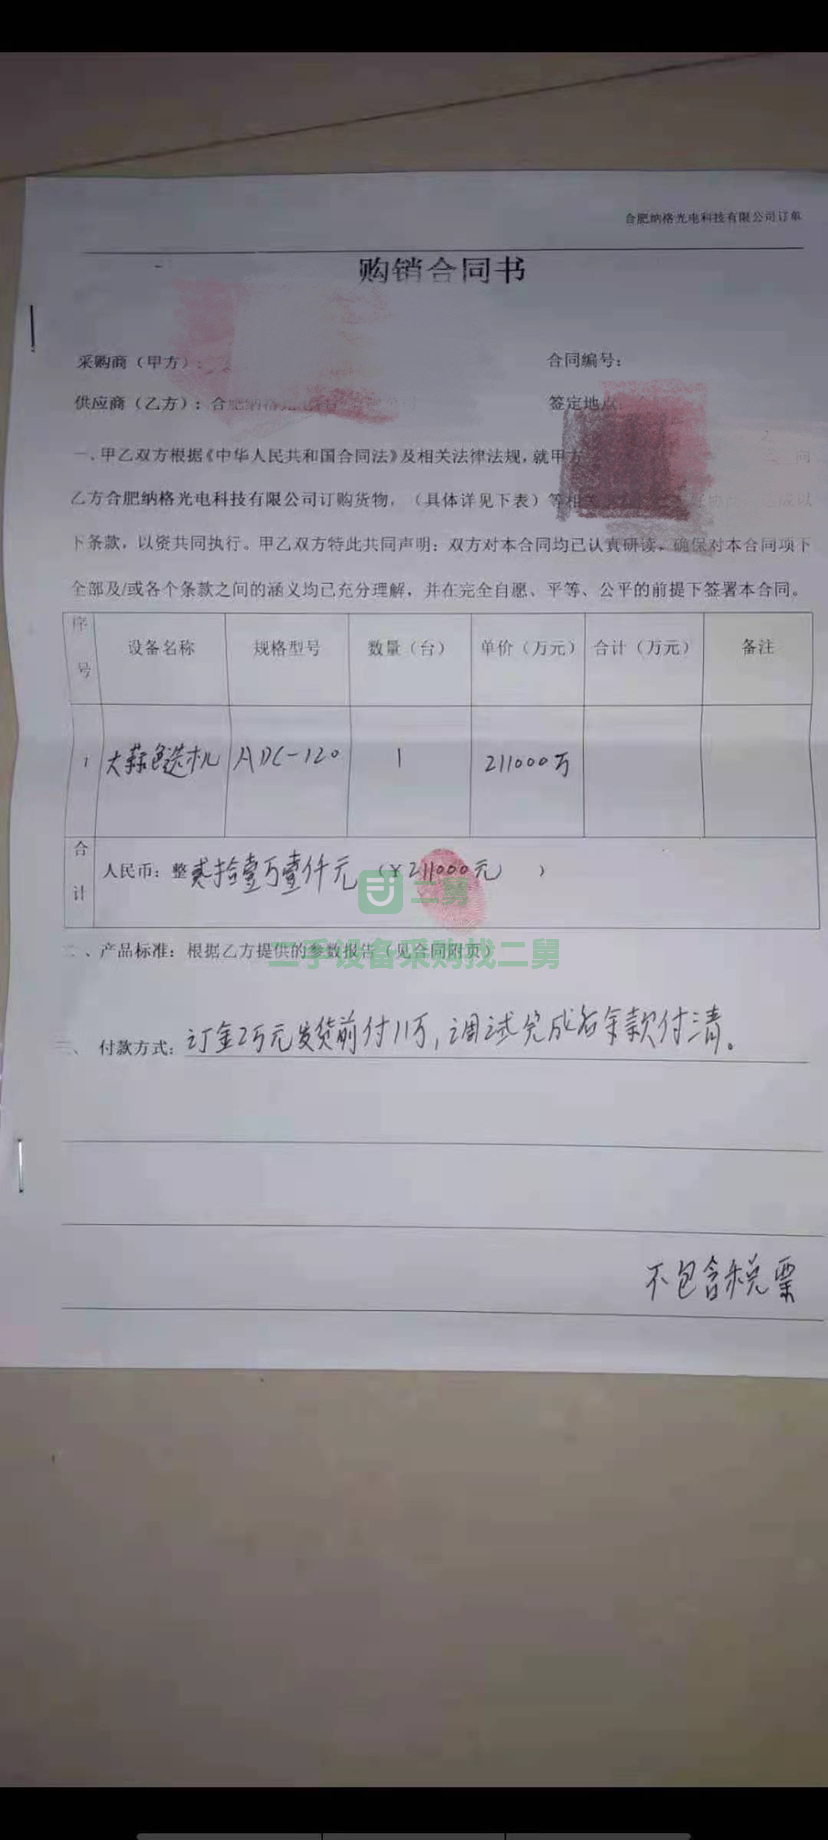 合肥纳格光电科技有限公司订单
购销合同书
采购商（甲方）：
合同编号：
供应商（乙方）：合肥纳格光
签定地点
一、甲乙双方根据《中华人民共和国合同法》及相关法律法规，就甲方 向
乙方合肥纳格光电科技有限公司订购货物，（具体详见下表）等相 达成以
下条款，以资共同执行。甲乙双方特此共同声明：双方对本合同均已认真研读，确保对本合同项下
全部及/或各个条款之间的涵义均已充分理解，并在完全自愿、平等、公平的前提下签署本合同。
序号 设备名称 规格型号 数量（台） 单价（万元） 合计（万元） 备注
1 大蒜色选机 ADC-120 1 211000万
合计 人民币：整贰拾壹万壹仟元（￥211000元 ）
二舅
二手设备采购找二舅
二、产品标准：根据乙方提供的参数报告（见合同附页）
三、付款方式：订金2万元发货前付11万，调试完成后余款付清。
不包含税票